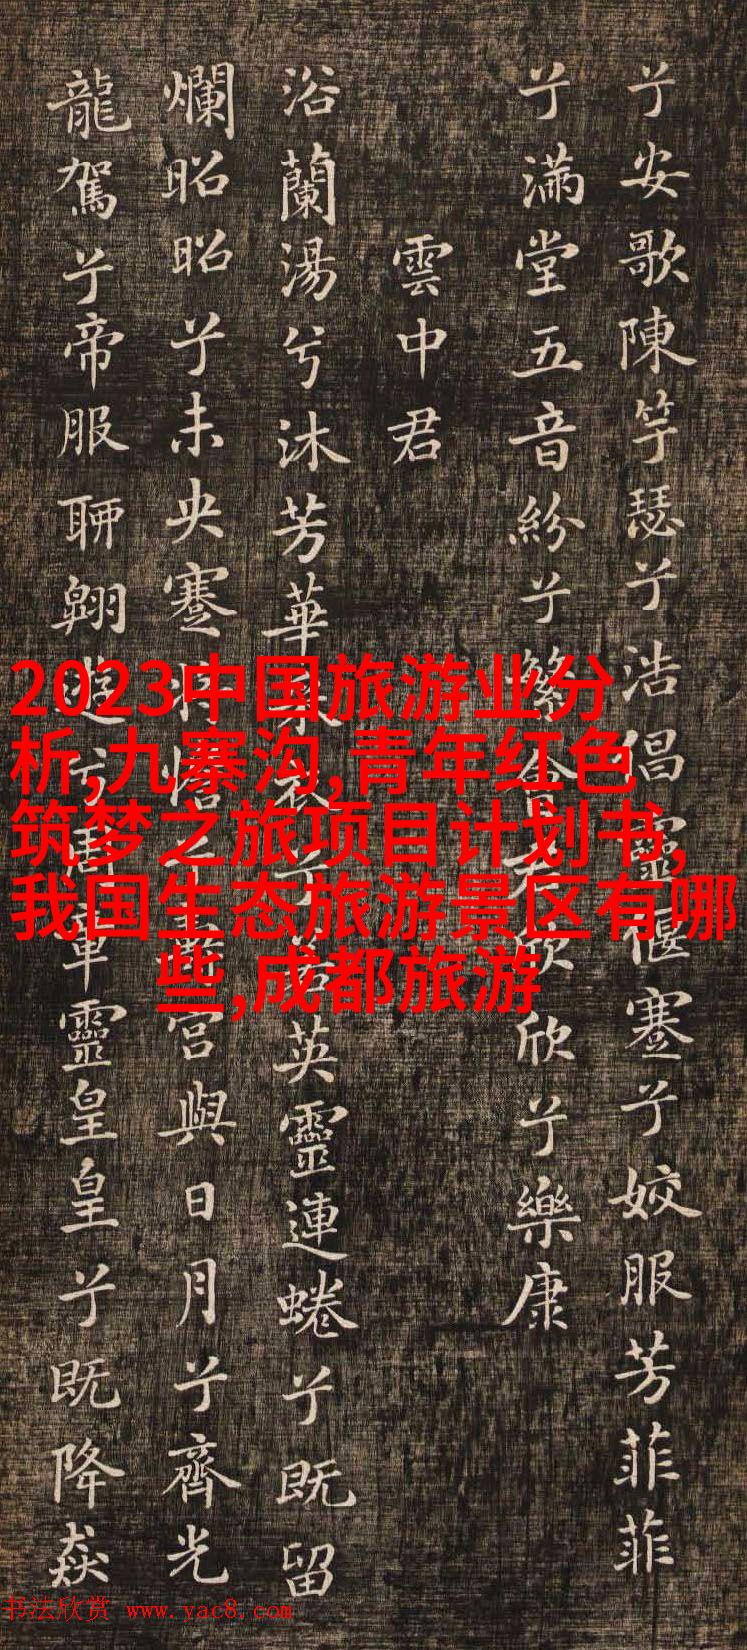 兮安歌陳竽瑟兮浩倡靈偃蹇兮姣服芳菲菲
兮滿堂五音紛兮繁會君欣欣兮樂康
雲中君
浴蘭湯兮沐芳華采衣兮若英靈連蜷兮既留
爛昭昭兮未央蹇將憺兮壽宮與日月兮齊光
龍駕兮帝服聊翱遊兮周章靈皇皇兮既降猋
2023中国旅游业分
析,九寨沟,青年红色
筑梦之旅项目计划书,
我国生态旅游景区有哪
些,成都旅游
书法欣赏 www.yac8.com